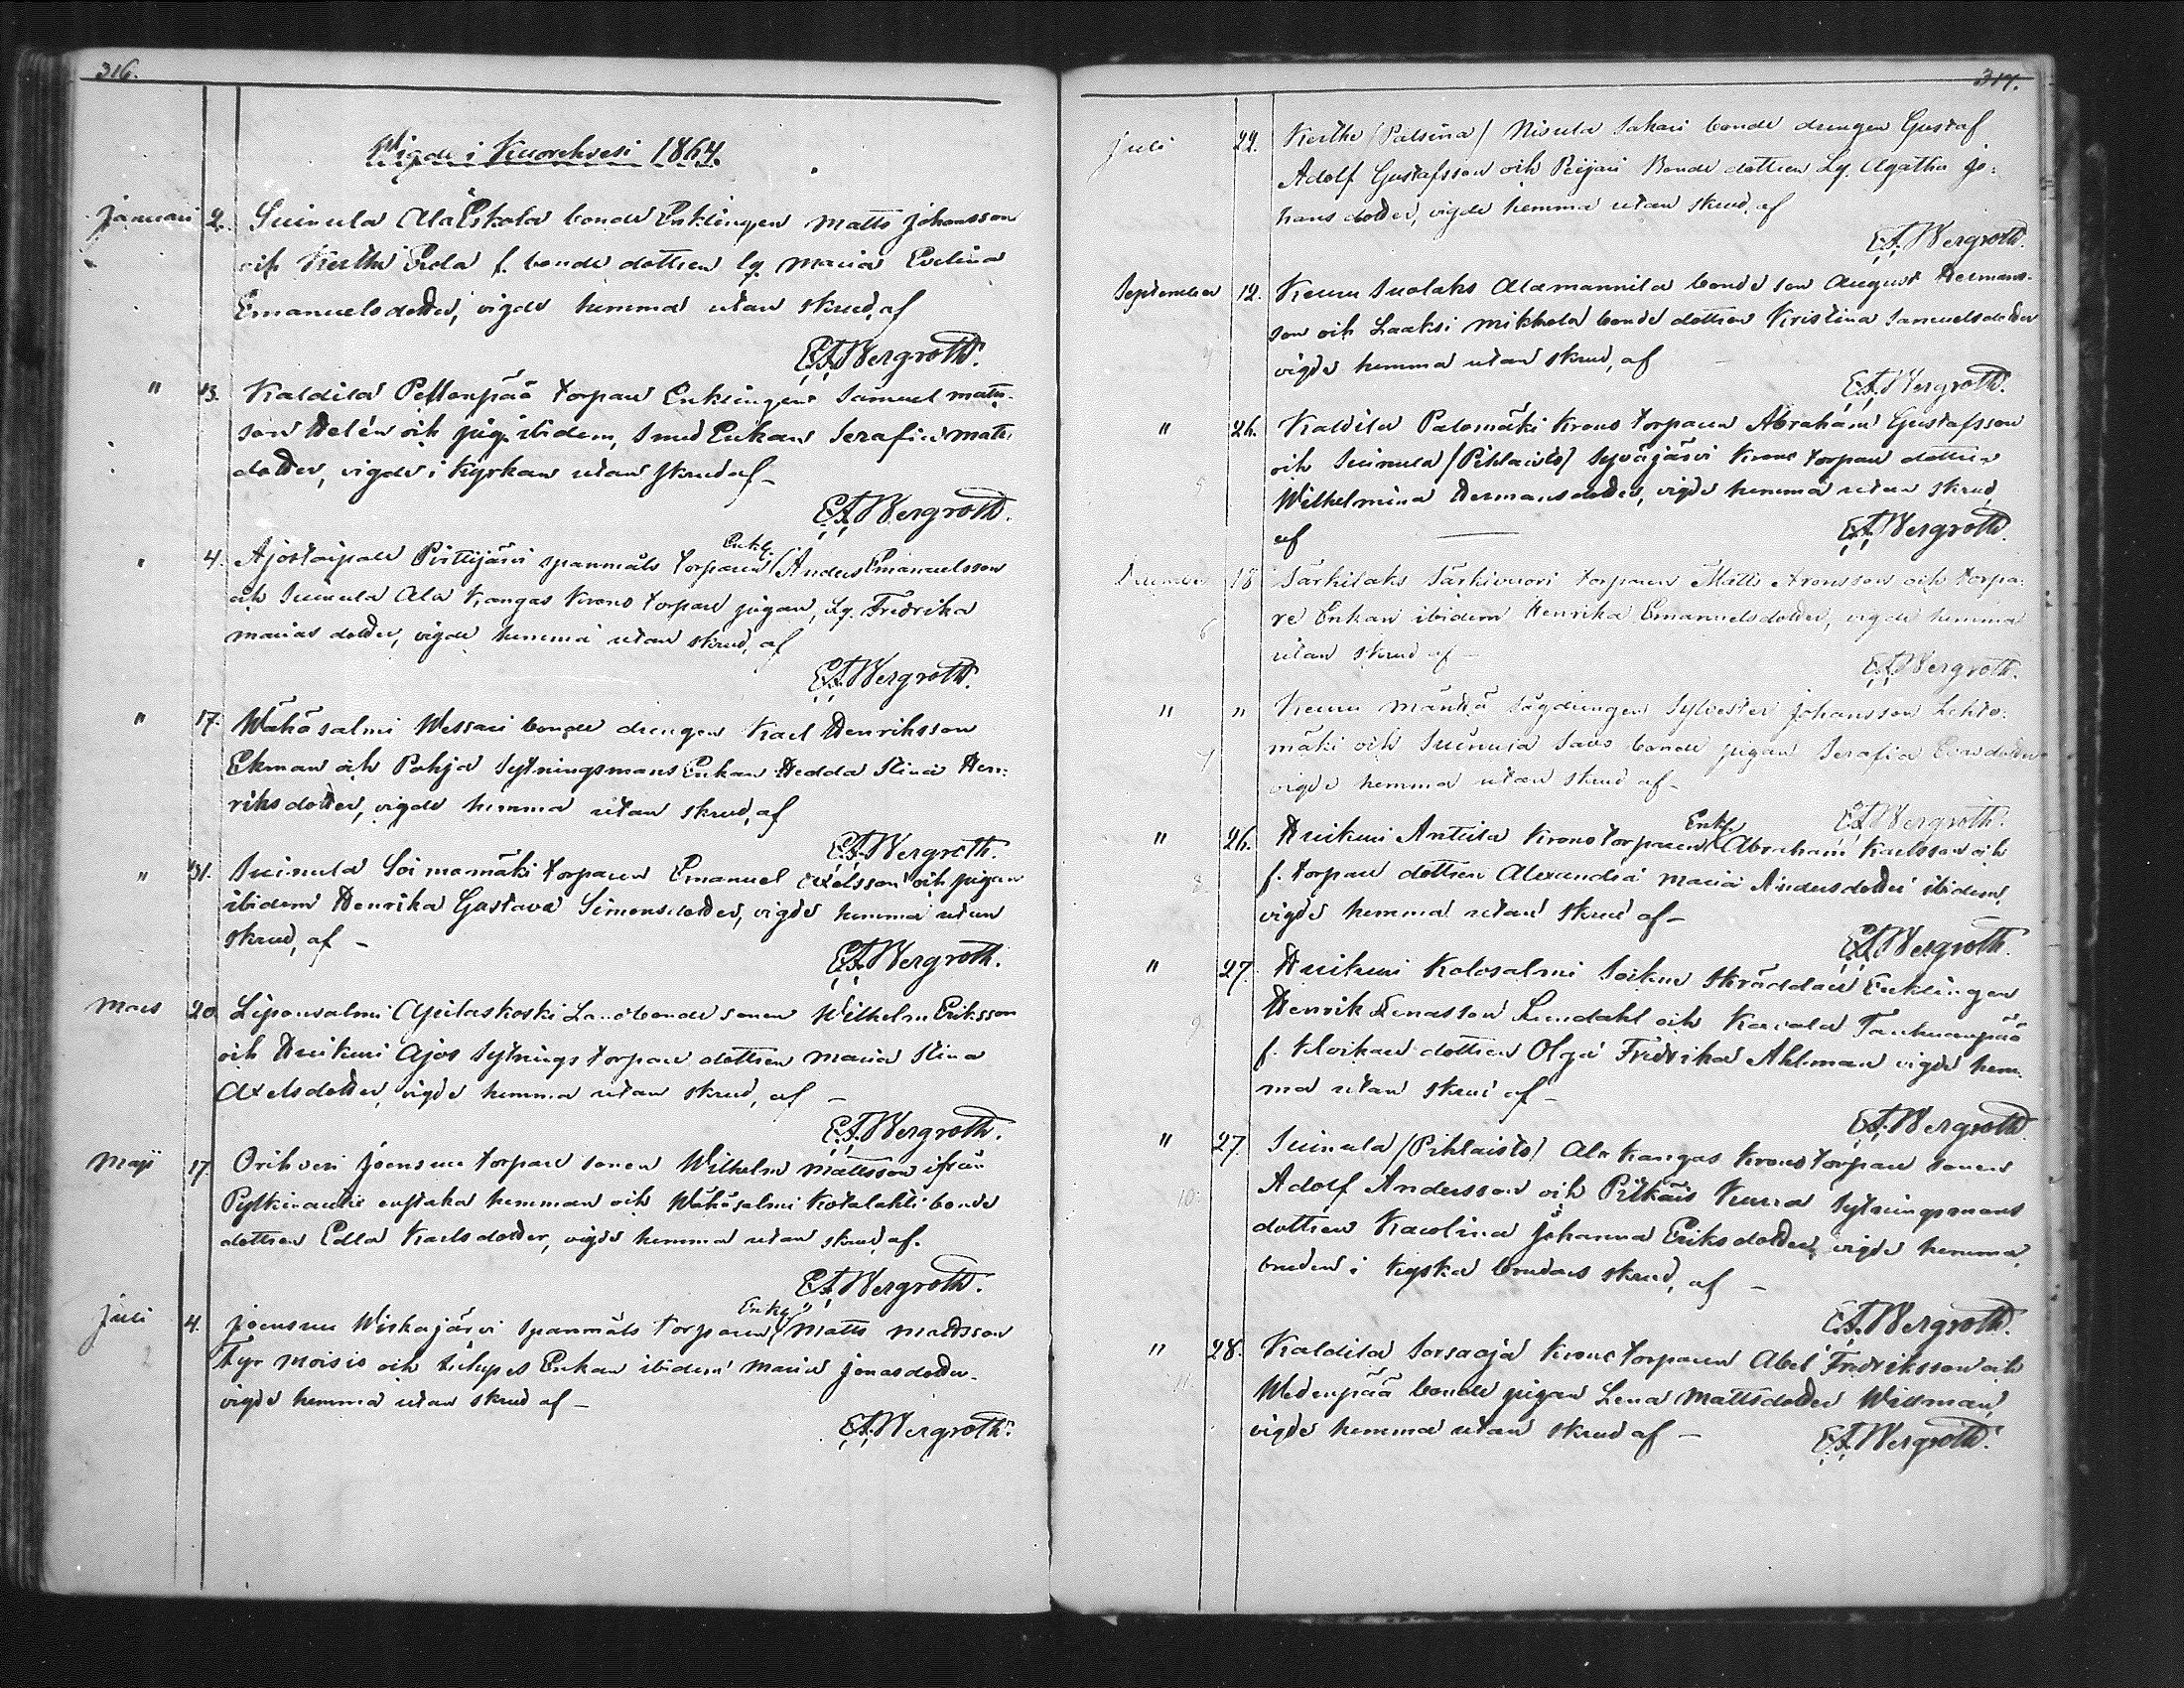 316.
Wigde i Kuorehvesi 1864.
Januari 2. Suinula Ala Eskola bonde Enklingen Matts Johansson
och Kerthe Erola f. bonde dottren lg. Maria Evelina
Emanuelsdotter, vigde hemma utan skrud, af
E.A. Wergroth.
" 3. Kaldila Peltonpää torpare Enklingen Samuel Matts-
son Helén och pig. ibidem, Smed Enkan Serafia Matts
dotter, vigde i Kyrkan utan skrud af -
E.A. Wergroth.
" 4. Ajostaipale Pirttijärvi spanmåls torparen Enkl. Anders Emanuelsson
och Suinula Ala Kangas Krono torpare pigan, Lg. Fredrika
Marias dotter, vigde hemma utan skrud, af
E.A. Wergroth.
" 17. Wähäsalmi Wessari bonde drengen Karl Henriksson
Ekman och Pohja Sytningsmans Enkan Hedda Stina Hen-
riksdotter, vigde hemma utan skrud, af
E.A. Wergroth.
" 31. Suinula Soimamäki torparen Emanuel Axelsson och pigan
ibidem Henrika Gustava Simonsdotter, vigde hemma utan
skrud, af -
E.A. Wergroth.
Mars 20. Liponsalmi Apilaskoski Landbonde sonen Wilhelm Eriksson
och Huikuri Ajos Sytnings torpare dottren Maria Stina
Axelsdotter, vigde hemma utan skrud, af -
E.A. Wergroth.
Maji 17. Orihvesi Joensuu torpare sonen Wilhelm Mattsson ifrån
hemman och Wähäsalmi Kotalahti bonde
dottren Edla Karlsdotter, vigde hemma utan skrud, af.
E.A. Wergroth.
Juli 4. Joensuu Wiskajärvi Spanmåls torparen Enkl. Matts Mattsson
2 och Enkan ibidem Maria Jonasdotter.
vigde hemma utan skrud af -
E.A. Wergroth.
317.
Juli 22. Kerthe (Palsina) Nisula Sakari bonde drengen Gustaf
Adolf Gustafsson och Reijari Bonde dottren Lg. Agatha Jo-
hans dotter, vigde hemma utan skrud, af
E.A. Wergroth.
September 12. Keuru Suolaks Alamannila bonde son August Hermans-
son och Laaksi Mikkola bonde dottren Kristina Samuelsdotter
vigde hemma utan skrud, af
E.A. Wergroth.
" 26. Kaldila Palomäki Krono torparen Abraham Gustafsson
och Suinula (Pihlaisto) Syväjärvi Krono torpare dottren
5 Wilhelmina Hermansdotter, vigde hemma utan skrud
af
E.A. Wergroth.
December 18 Särkilaks Särkivuori torparen Matts Aronsson och torpa-
6 re Enkan ibidem Henrika Emanuelsdotter, vigde hemma
utan skrud af -
E.A. Wergroth.
" " Keuru Mänttä Sågdrengen Sylvester Johansson Lehto-
7 mäki och Suinula Savo bonde pigan Serafia
vigde hemma utan skrud af -
E.A. Wergroth.
" 26. Huikuri Anttila Krono torparen Enkl. Abraham Karlsson och
8 f. torpare dottren Alexandra Maria Andersdotter ibidem,
vigde hemma utan skrud af -
E.A. Wergroth.
" 27. Huikuri Kolosalmi Soikun Skräddare Enklingen
9 Henrik Lundahl och Karvala
f. dottren Olga Fredrika Ahlman vigde hem-
ma utan skrud af -
E.A. Wergroth.
" 27. Suinula (Pihlaisto) Ala Kangas Krono torpare sonen
10. Adolf Andersson och Pitkäis Kurra Sytningsmans
dottren Karolina Johanna Eriksdotter, vigde hemma,
bruden i Kyrko brudens skrud, af -
E.A. Wergroth.
" 28. Kaldila Sorsaoja Krono torparen Abel Fredriksson och
11. Wedenpää bonde pigan Lena Mattsdotter Widman,
vigde hemma utan skrud af -
E.A. Wergroth.